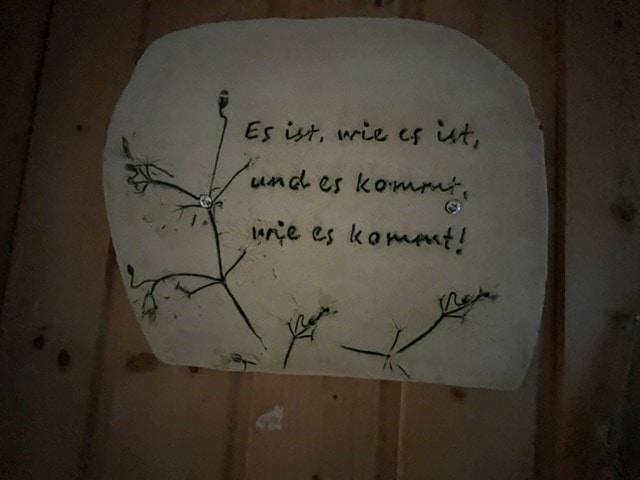 Es ist, wie es ist,
und es kommt,
wie es kommt!